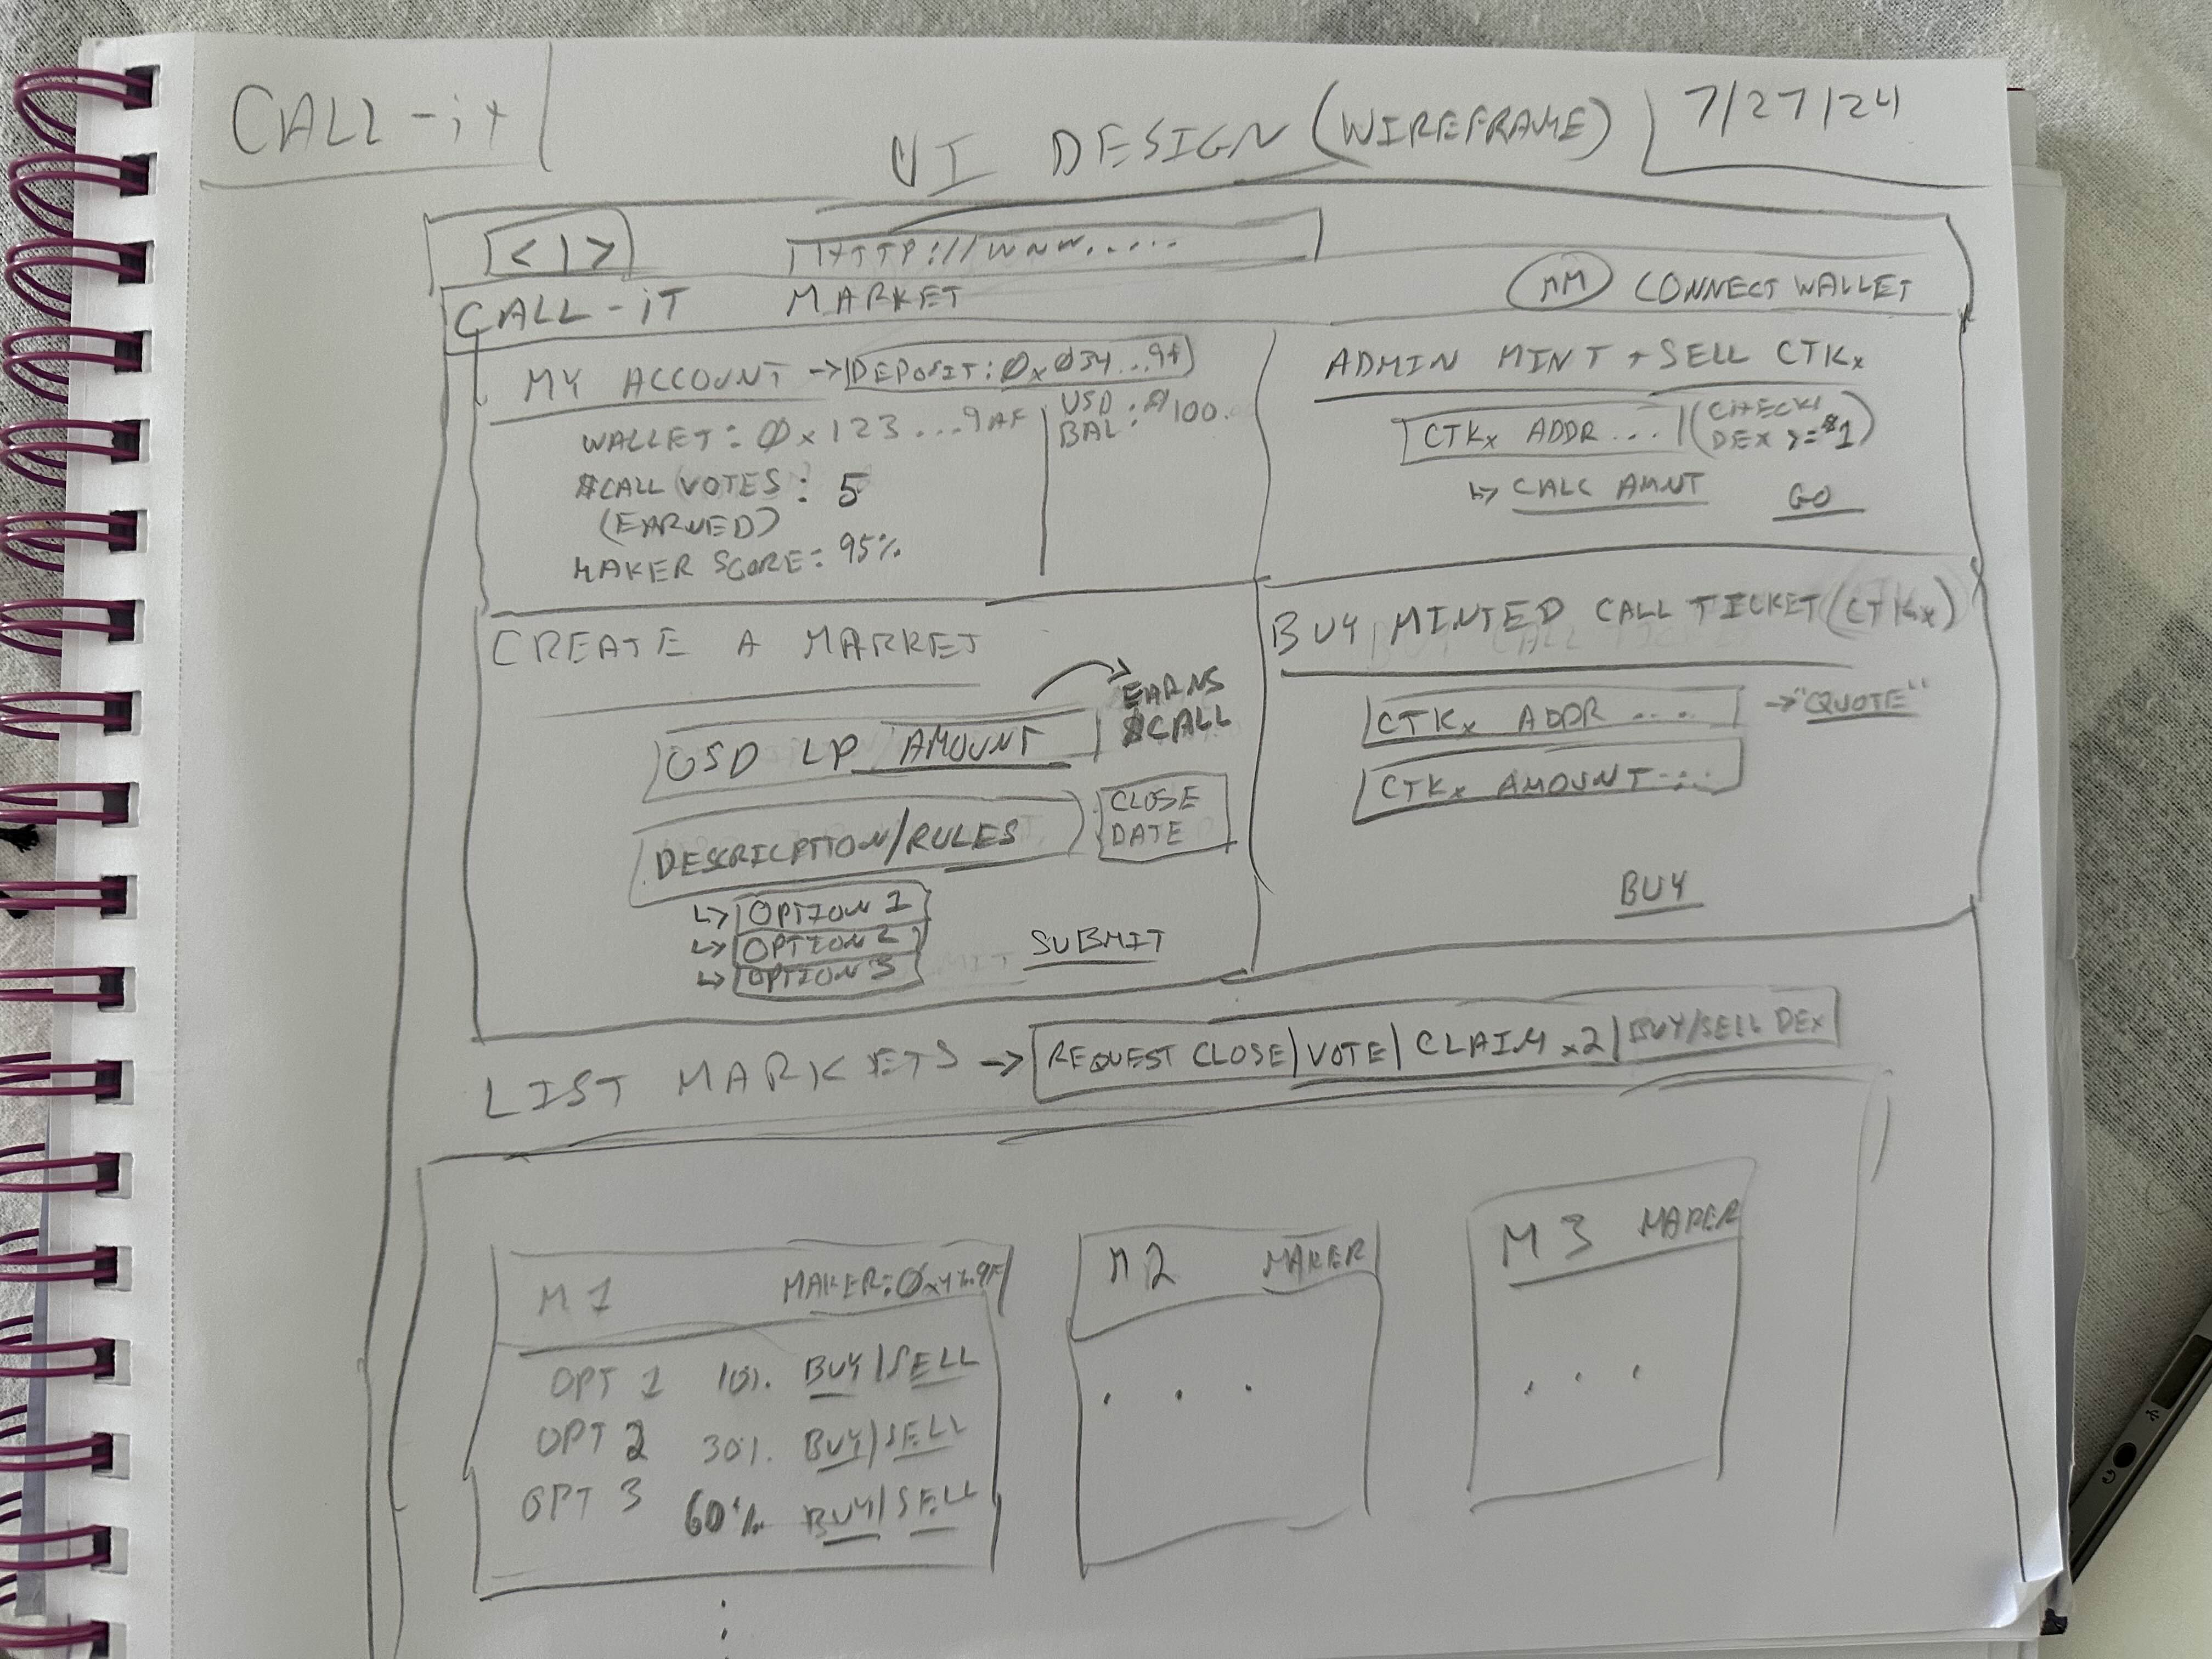 CALL-it
UI DESIGN (WIREFRAME)
7/27/24
< | >
HTTP://WWW.....
CALL-iT MARKET
MM CONNECT WALLET
MY ACCOUNT → DEPOSIT: 0x034...9f
WALLET: 0x123...9AF
USD BAL: $100.
$CALL (VOTES): 5
(EARNED)
MAKER SCORE: 95%
ADMIN MINT + SELL CTKx
CTKx ADDR ...
(CHECK!
DEX >= $1)
↳ CALC AMNT
GO
CREATE A MARKET
USD LP AMOUNT
EARNS
$CALL
DESCRIPTION/RULES
CLOSE
DATE
↳ OPTION 1
↳ OPTION 2
↳ OPTION 3
SUBMIT
BUY MINTED CALL TICKET (CTKx)
CTKx ADDR ....
→ "QUOTE"
CTKx AMOUNT ....
BUY
LIST MARKETS → REQUEST CLOSE | VOTE | CLAIM x2 | BUY/SELL DEX
M1 MAKER:
OPT 1 10%. BUY/SELL
OPT 2 30%. BUY/SELL
OPT 3 60% BUY/SELL
M2 MAKER
. . .
M3 MAKER
. . .